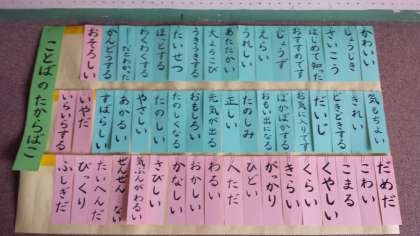 かわいい
しょうじき
さいこう
はじめて知った
おすすめです
じょうず
えらい
うれしい
あたたかい
大よろこび
うきうきする
たいせつ
ほっとする
わくわくする
かんどうする
おそろしい
気もちよい
きれい
どきどきする
だいじ
お気に入りです
ぽかぽかする
おもい出になる
たのしみ
正しい
元気が出る
おもしろい
たのしくなる
たのしい
やさしい
あかるい
すばらしい
いやだ
いらいらする
だめだ
こわい
こまる
くやしい
くらい
きらい
がっかり
ひどい
へただ
わるい
おかしい
かなしい
さびしい
気ぶんがわるい
ぜんぜん ない
たいへんだ
びっくり
ふしぎだ
ことばのたからばこ